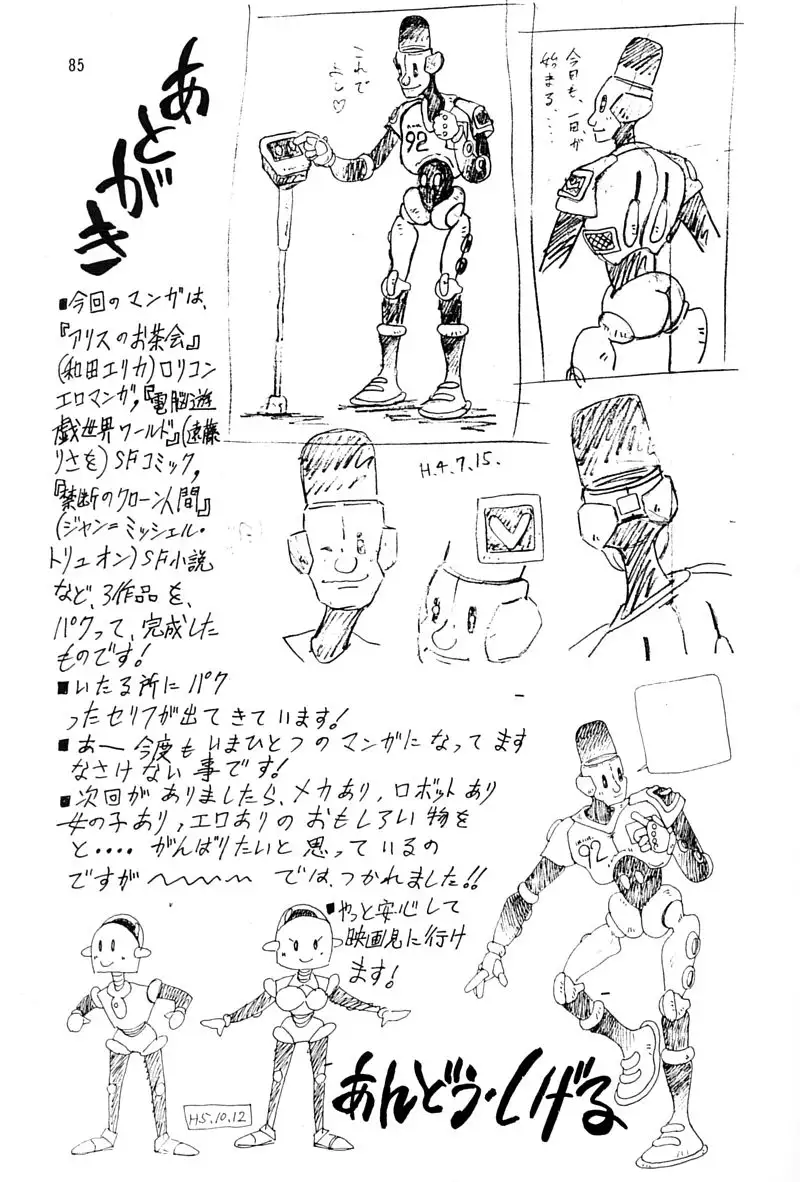 85
あとがき
これで
よし♡
今日も、一日が
始まる、・・・
■今回のマンガは、
『アリスのお茶会』
(和田エリカ)ロリコン
エロマンガ,『電脳遊
戯世界ワールド』(遠藤
りさを)SFコミック,
『禁断のクローン人間』
(ジャン=ミッシェル・
トリュオン)SF小説
など、3作品を、
パクって、完成した
ものです!
■いたる所にパク
ったセリフが出てきています!
■あー今度もいまひとつのマンガになってます
なさけない事です!
■次回がありましたら、メカあり,ロボットあり
女の子あり,エロありのおもしろい物を
と・・・・がんばりたいと思っているの
ですが〜〜〜〜では、つかれました!!
■やっと安心して
映画見に行け
ます!
H.4.7.15.
92
92
H5.10.12
あんどう・しげる